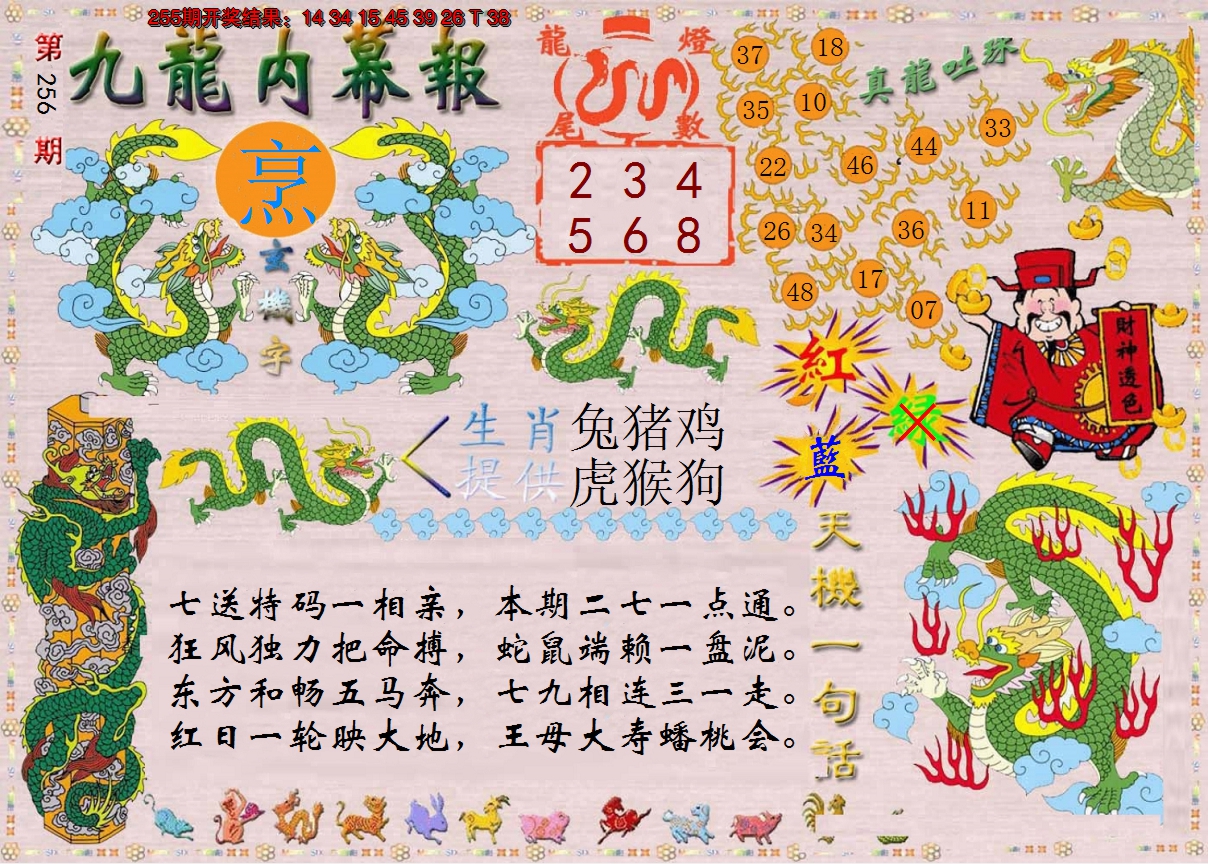 255期开奖结果：14 34 15 45 39 26 T 38
第256期
九龍内幕報
烹
玄機字
龍燈
尾數
2 3 4
5 6 8
真龍吐珠
37 18
35 10
33
44
22 46
11
26 34 36
17
48 07
財神透色
紅
绿
藍
生肖
提供
兔猪鸡
虎猴狗
天機一句話
七送特码一相亲，本期二七一点通。
狂风独力把命搏，蛇鼠端赖一盘泥。
东方和畅五马奔，七九相连三一走。
红日一轮映大地，王母大寿蟠桃会。